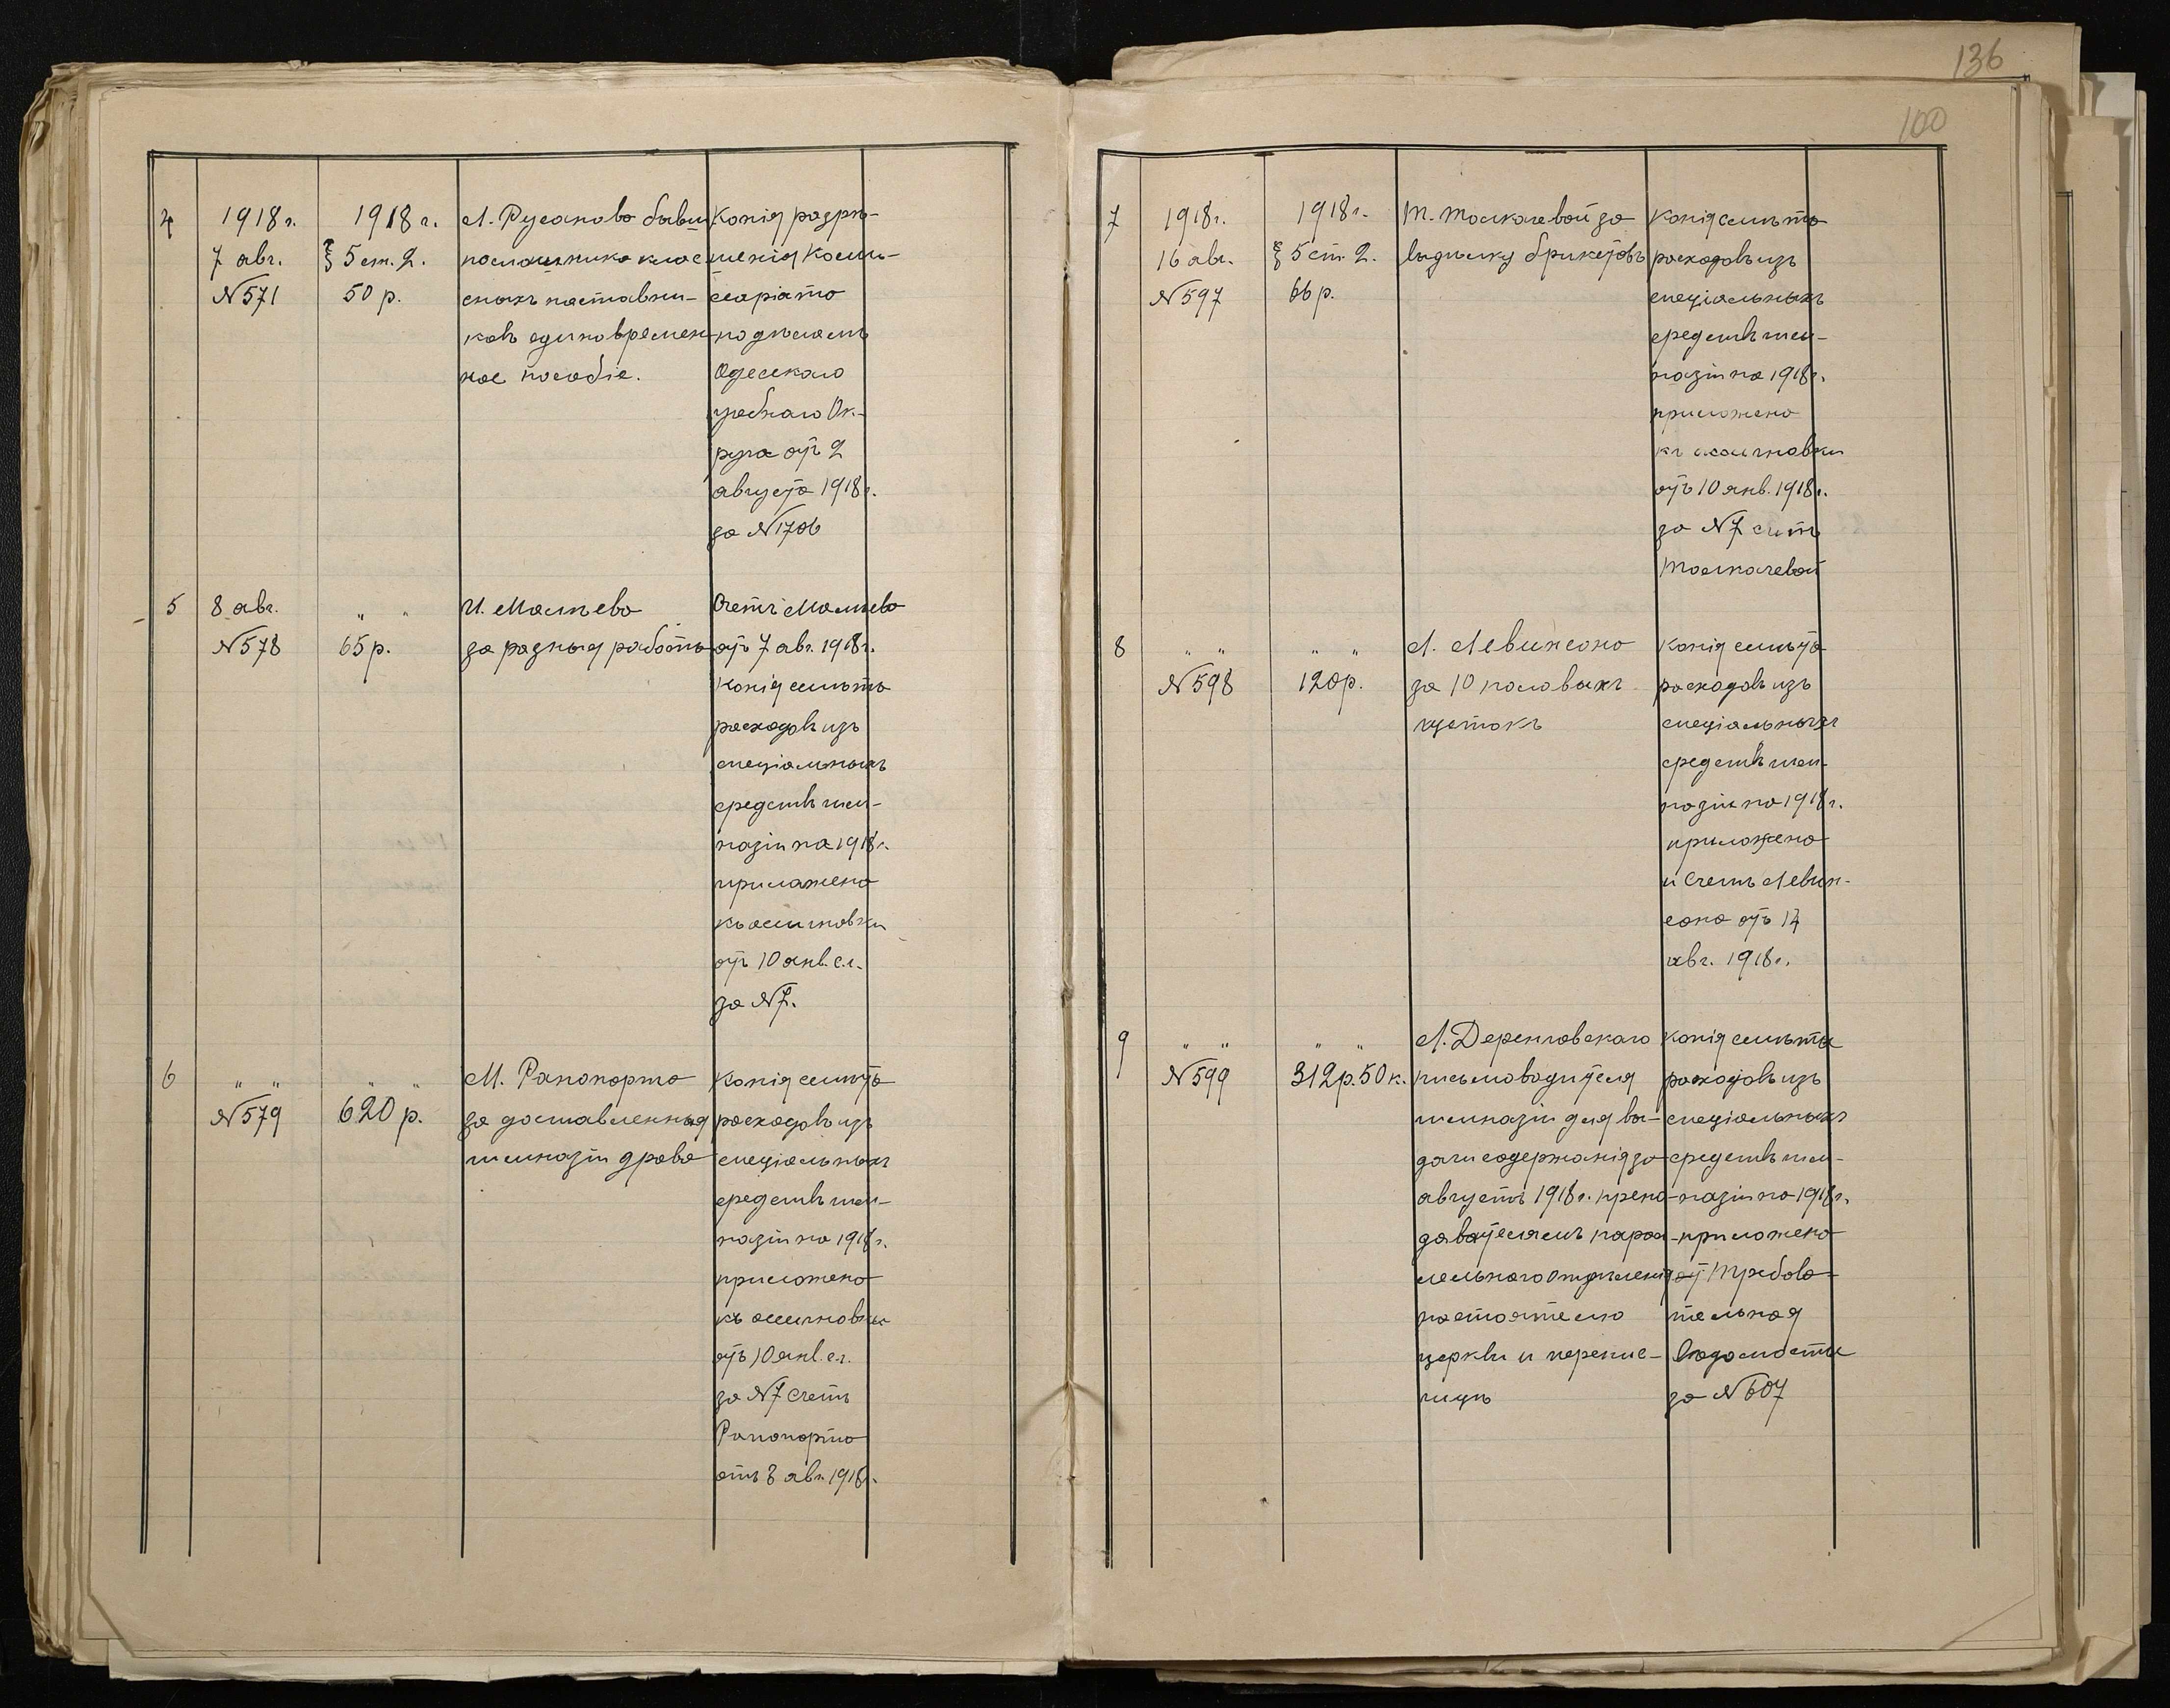 136
100
4
1918 г.
7 авг.
№ 571
1918 г.
§ 5 ст. 2.
50 р.
Л. Русанова бывш
помощника клас
сныхъ наставни-
ковъ единовремен-
ное пособіе.
Копія разрѣ-
шенія Комис-
саріата
по дѣламъ
Одесскаго
учебнаго Ок-
руга отъ 2
августа 1918 г.
за № 1706
5
8 авг.
№ 578
" "
65 р.
И. Мальева
за разныя работы
Счетъ Мальева
отъ 7 авг. 1918 г.
Копія смѣты
расходовъ изъ
спеціальныхъ
средствъ гим-
назіи на 1918 г.
приложена
къ ассигновки
отъ 10 янв. с.г.
за № 7.
6
" "
№ 579
" "
620 р.
М. Рапопорта
за доставленныя
гимназіи дрова
Копія смѣта
расходовъ изъ
спеціальныхъ
средствъ гим-
назіи на 1918 г.
приложена
къ ассигновки
отъ 10 янв. с.г.
за № 7 счетъ
Рапопорта
отъ 8 авг. 1918 г.
7
1918 г.
16 авг.
№ 597
1918 г.
§ 5 ст. 2.
66 р.
Т. Толкачевой за
выдѣлку брикетовъ
Копія смѣта
расходовъ изъ
спеціальныхъ
средствъ гим-
назіи на 1918 г.
приложена
къ ассигновки
отъ 10 янв. 1918 г.
за № 7 счетъ
Толкачевой
8
" "
№ 598
" "
120 р.
Л. Левинсона
за 10 половыхъ
щетокъ
Копія смѣта
расходовъ изъ
спеціальныхъ
средствъ гим-
назіи на 1918 г.
приложена
и счетъ Левин-
сона отъ 14
авг. 1918 г.
9
" "
№ 599
" "
312 р. 50 к.
Л. Деренговскаго
письмоводителя
гимназіи для вы-
дачи содержанія за
августъ 1918 г. препо-
давателямъ парал-
лельнаго отдѣленія
настоятелю
церкви и перепис-
чицѣ
Копія смѣты
расходовъ изъ
спеціальныхъ
средствъ гим-
назіи на 1918 г.
приложена
Требова-
тельная
Вѣдомость
за № 607